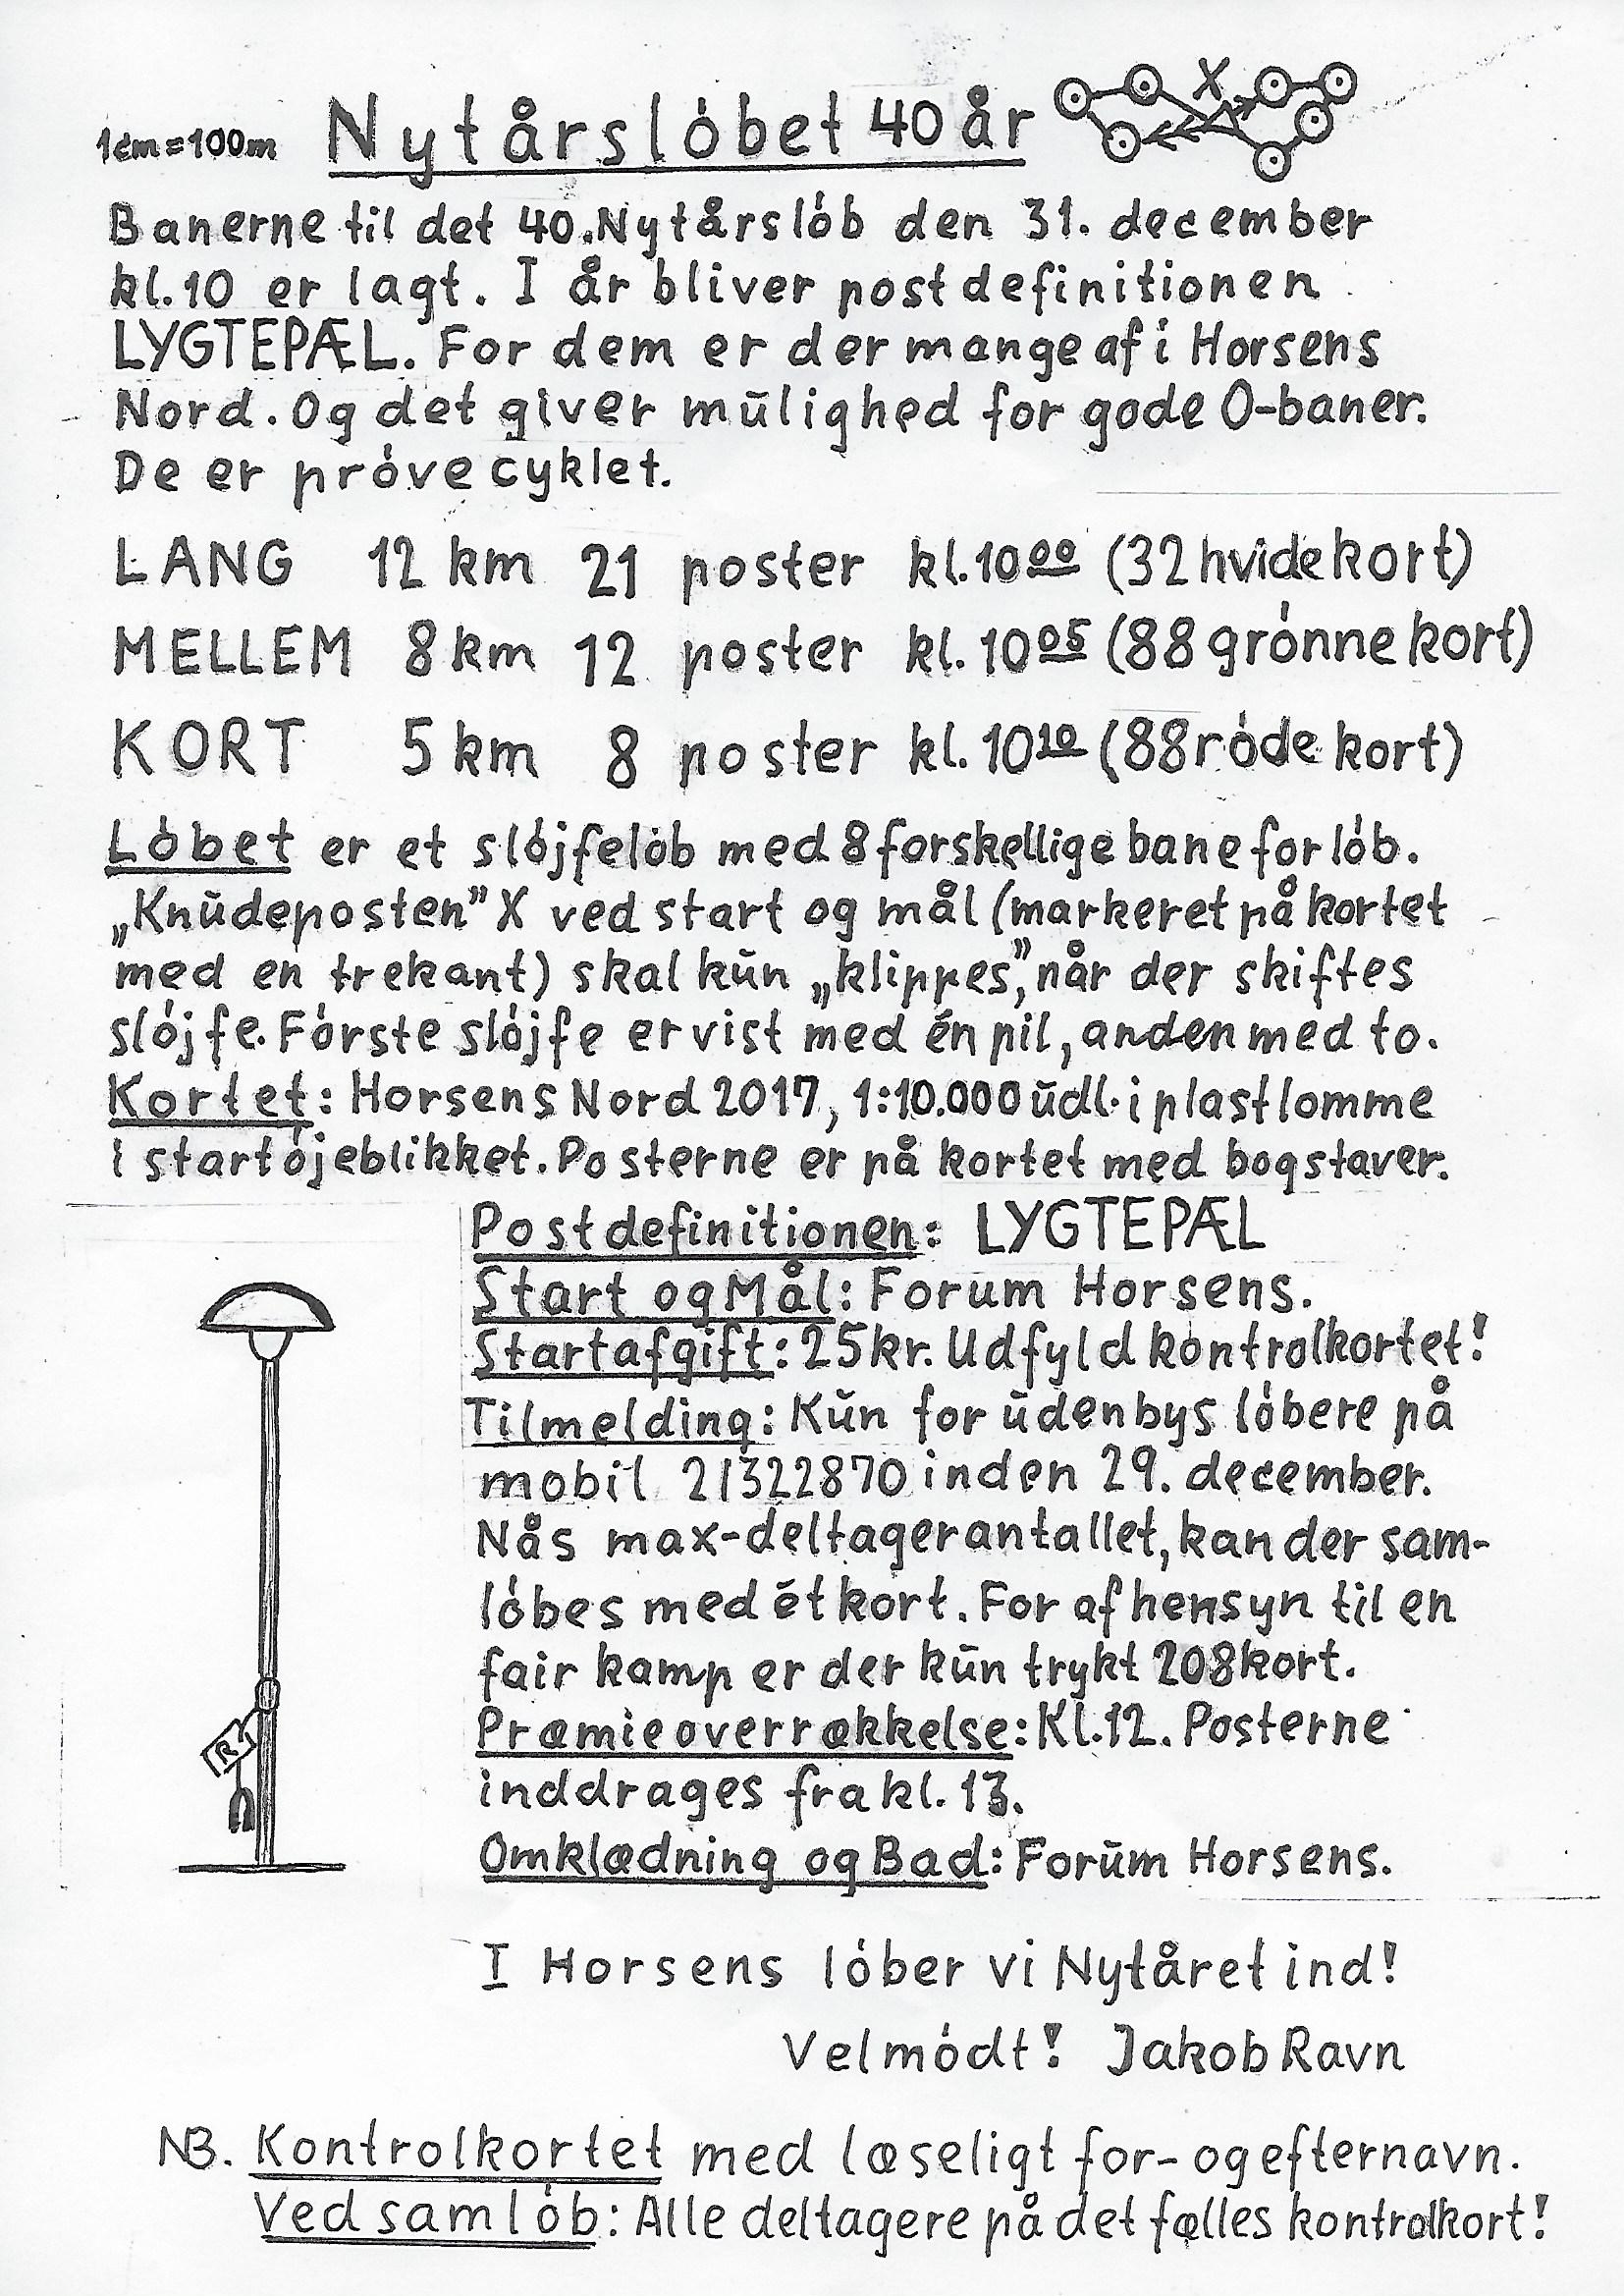 1cm=100m Nytårsløbet 40 år X
Banerne til det 40. Nytårsløb den 31. december
kl. 10 er lagt. I år bliver postdefinitionen
LYGTEPÆL. For dem er der mange af i Horsens
Nord. Og det giver mulighed for gode O-baner.
De er prøvecyklet.
LANG 12 km 21 poster kl. 10⁰⁰ (32 hvide kort)
MELLEM 8 km 12 poster kl. 10⁰⁵ (88 grønne kort)
KORT 5 km 8 poster kl. 10¹⁰ (88 røde kort)
Løbet er et sløjfeløb med 8 forskellige baneforløb.
„Knudeposten” X ved start og mål (markeret på kortet
med en trekant) skal kun „klippes”, når der skiftes
sløjfe. Første sløjfe er vist med én pil, anden med to.
Kortet: Horsens Nord 2017, 1:10.000 udl. i plastlomme
i startøjeblikket. Posterne er på kortet med bogstaver.
Postdefinitionen: LYGTEPÆL
Start og Mål: Forum Horsens.
Startafgift: 25 kr. Udfyld kontrolkortet!
Tilmelding: Kun for udenbys løbere på
mobil 21322870 inden 29. december.
Nås max-deltagerantallet, kan der sam-
løbes med ét kort. For af hensyn til en
fair kamp er der kun trykt 208 kort.
Præmieoverrækkelse: Kl. 12. Posterne
inddrages fra kl. 13.
Omklædning og Bad: Forum Horsens.
R
I Horsens løber vi Nytåret ind!
Velmødt! Jakob Ravn
NB. Kontrolkortet med læseligt for- og efternavn.
Ved samløb: Alle deltagere på det fælles kontrolkort!